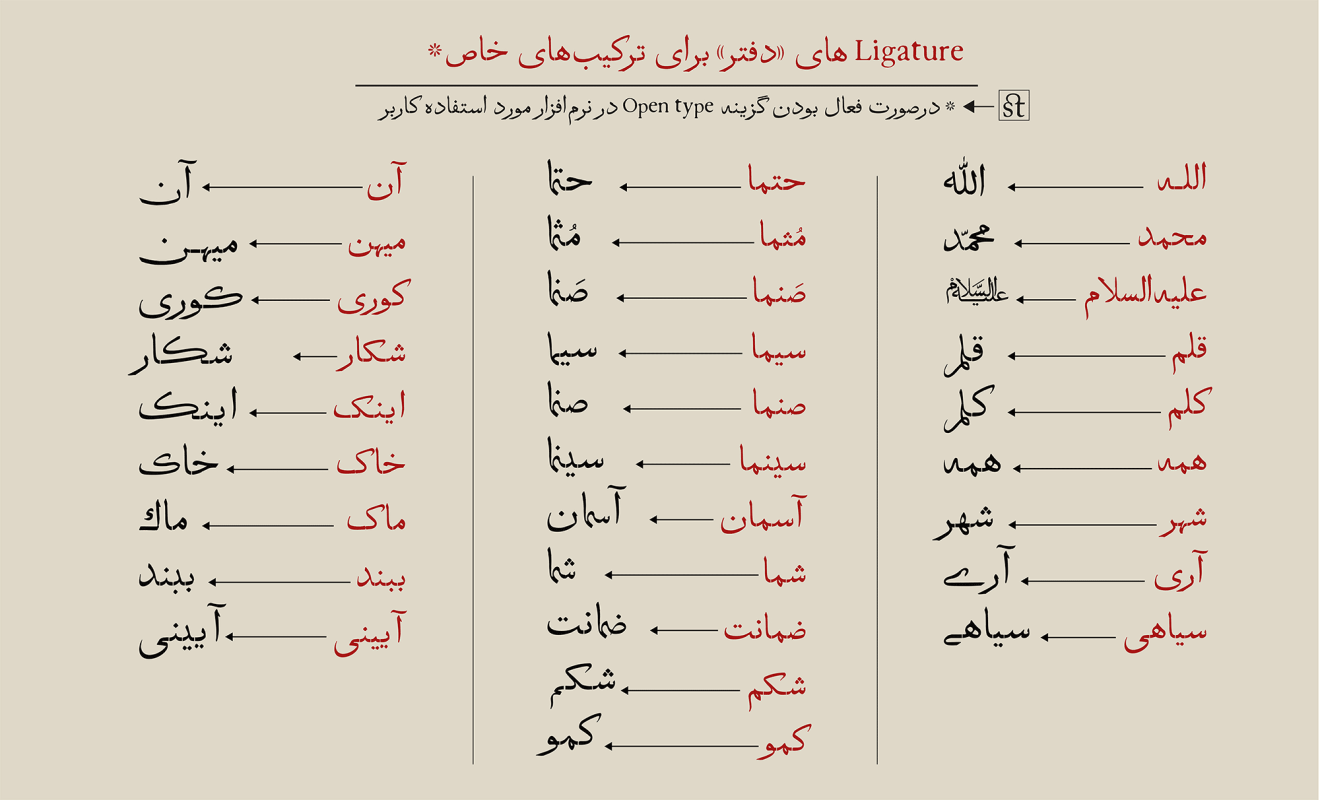 Ligature های «دفتر» برای ترکیب‌های خاص*
st ← * درصورت فعال بودن گزینه Open type در نرم‌افزار مورد استفاده کاربر
اللـه ← الله
محمد ← محمّد
علیه‌السلام ← علیه‌السلام
قلم ← قلم
کلم ← کلم
همه ← همه
شهر ← شهر
آری ← آرے
سیاهی ← سیاهے
حتما ← حتما
مُثما ← مُثما
صَنما ← صَنما
سیما ← سیما
صنما ← صنما
سینما ← سینما
آسمان ← آسمان
شما ← شما
ضمانت ← ضمانت
شکم ← شکم
کمو ← کمو
آن ← آن
میهن ← میهـن
کوری ← کوری
شکار ← شکار
اینک ← اینک
خاک ← خاک
ماک ← ماك
ببند ← ببند
آیینی ← آیینی